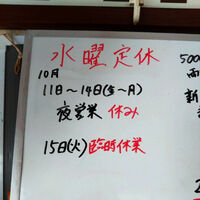 水曜定休
10月
11日～14日(金～月)
夜営業 休み
15日(火)臨時休業
500
新